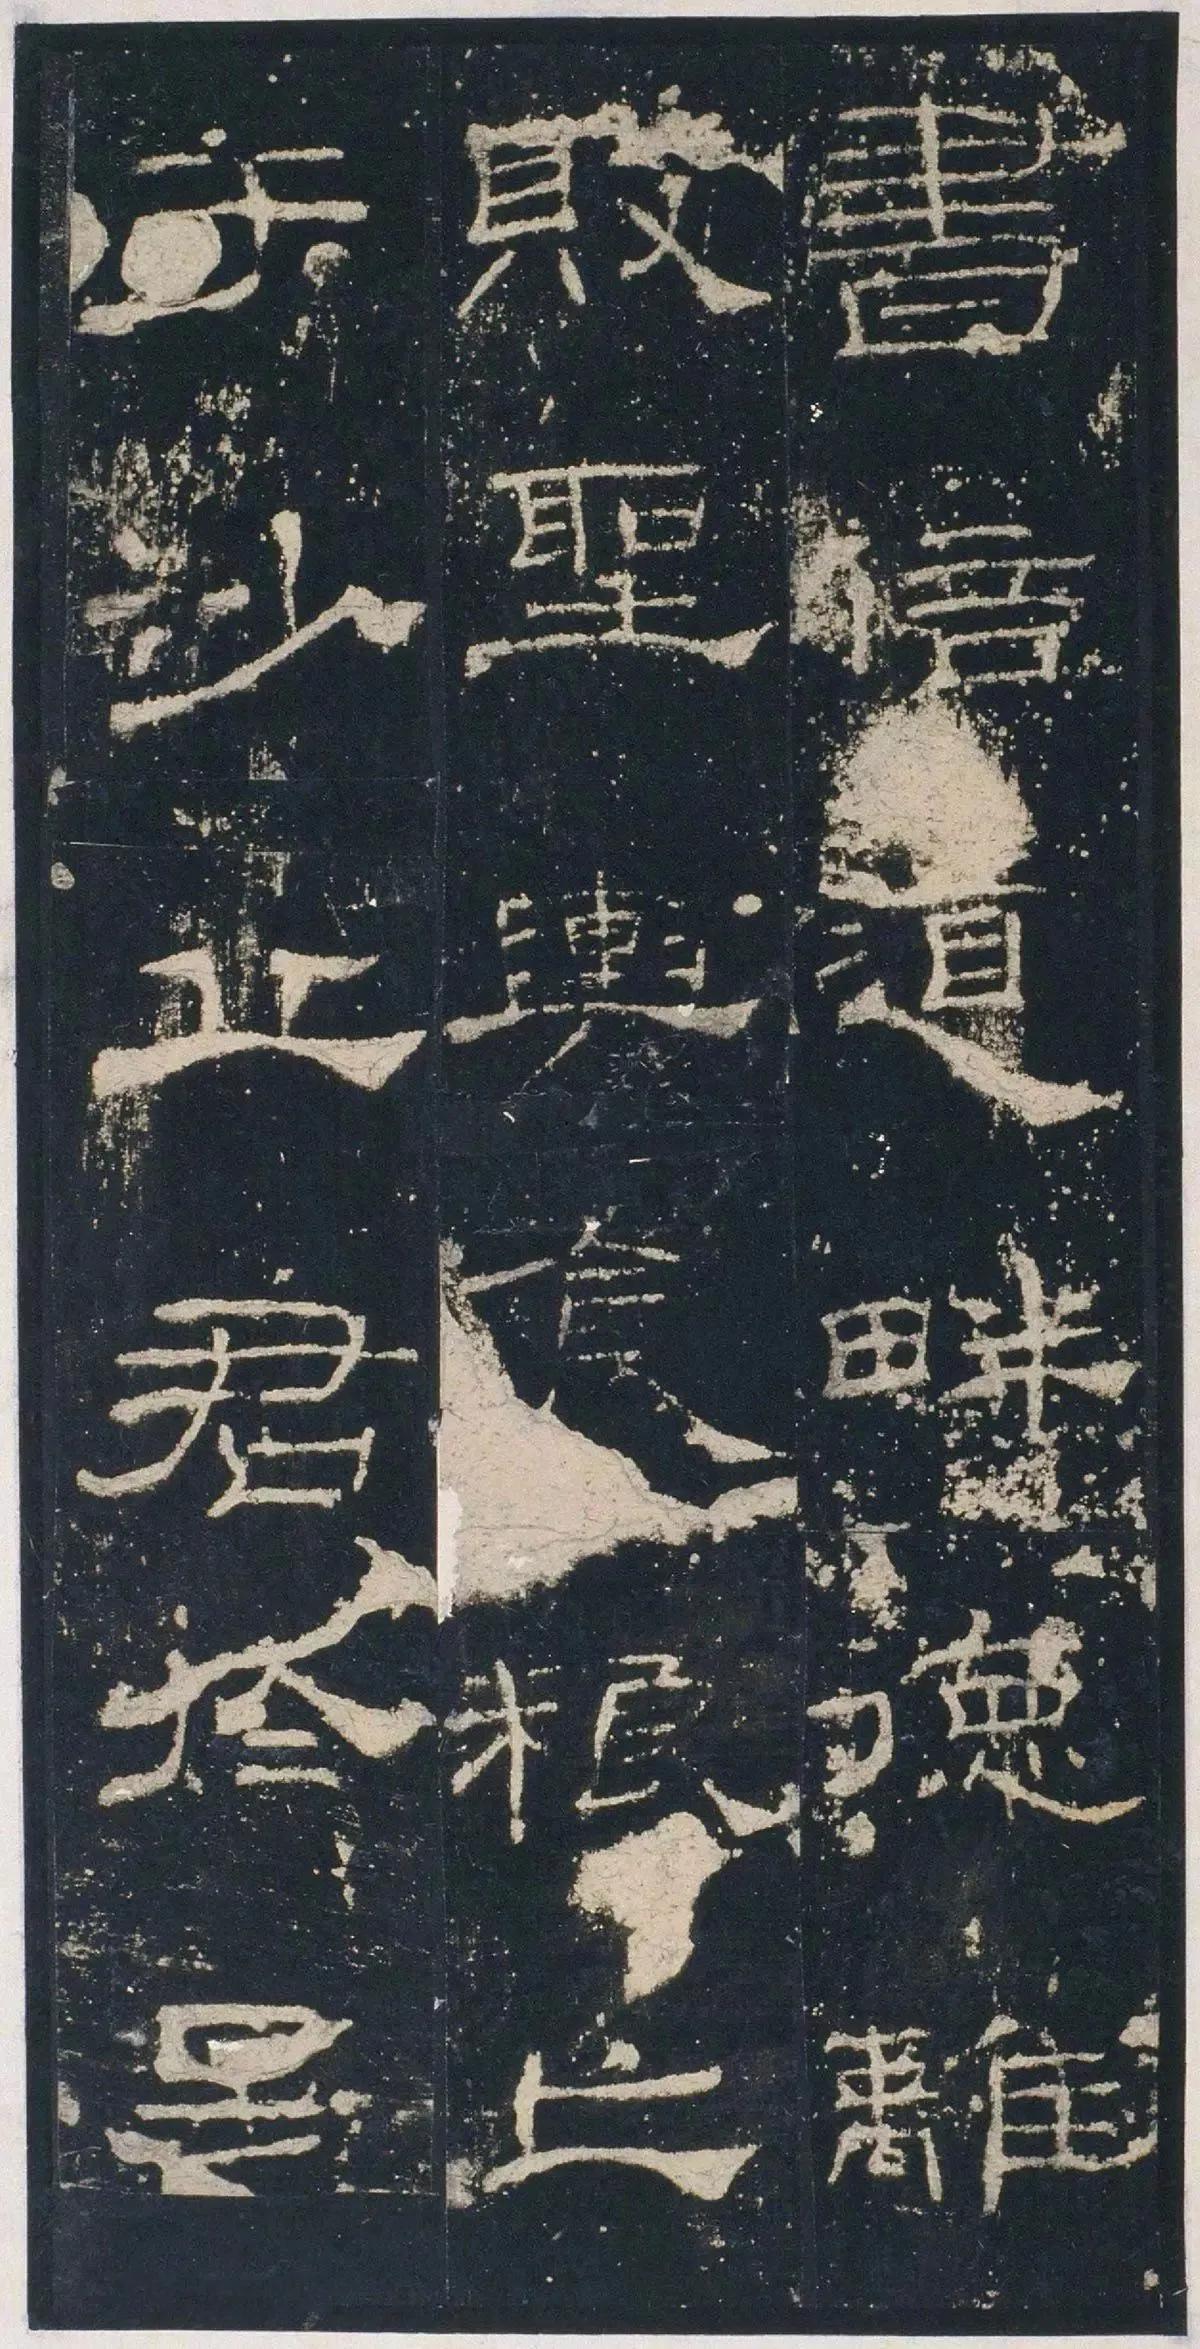 書倍道畔德離
敗聖輿食粮亡
于沙丘君於是